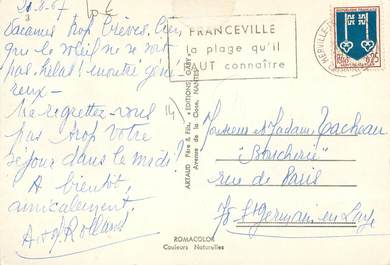 21.8.67
3
Vacances trop brèves. Bien
que le soleil ne se soit
pas hélas! montré géné-
reux -
Ne regrettez-vous
pas trop votre
séjour dans le midi?
A bientôt,
amicalement,
FRANCEVILLE
la plage qu'il
FAUT connaître
REPUBLIQUE FRANÇAISE
0,25
ARTAUD Père & Fils. ● EDITIONS GABY ●
Avenue de la Close, NANTES
Monsieur Madame Tacheau
"Boucherie"
rue de Paris
78 St Germain en Laye
ROMACOLOR
Couleurs Naturelles